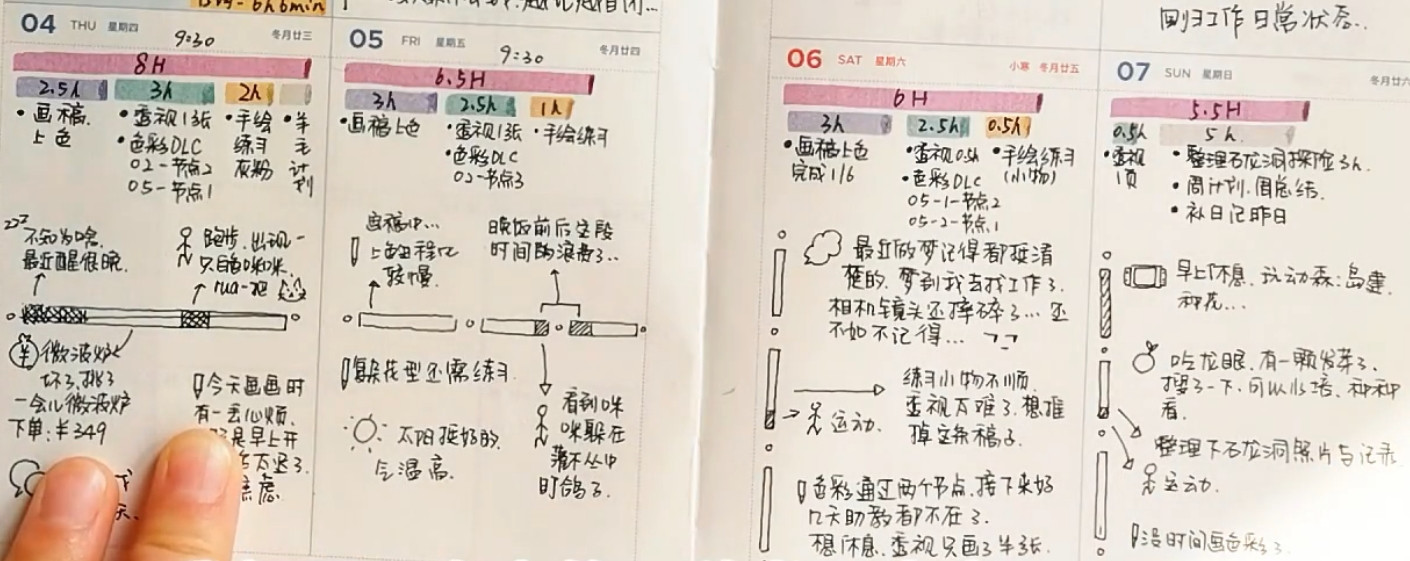 04 THU 星期四 冬月廿三
9:30
8H
2.5h 3h 2h
•画稿
上色
•透视13张
•色彩DLC
02-节点2
05-节点1
•手绘
练习
灰粉
•羊
毛
计
划
zzz
不知为啥
最近醒很晚
跑步,出现一
只白色咪咪
rua一把
微波炉
坏了,挑了
一会儿微波炉
下单:¥349
今天画画时
有一丢心烦
是早上开
太迟了
焦虑
05 FRI 星期五 冬月廿四
9:30
6.5H
3h 2.5h 1h
•画稿上色
•透视1张
•色彩DLC
02-节点3
•手绘练习
画稿中...
上色过程
较慢.
晚饭前后这段
时间浪费了..
复杂花型还需练习
太阳挺好的.
气温高.
看到咪
咪躲在
丛中
盯鸽子.
刚归工作日常状态..
06 SAT 星期六 小寒 冬月廿五
6H
3h 2.5h 0.5h
•画稿上色
完成1/6
•透视0.5h
•色彩DLC
05-1-节点2
05-2-节点1
•手绘练习
(小物)
最近做梦记得都挺清
楚的.梦到我去找工作了.
相机镜头还摔碎了...还
不如不记得...
练习小物不顺
透视太难了.想推
掉这条稿子.
运动.
色彩通过两个节点.接下来好
几天助教都不在了.
想休息.透视只画了半张.
07 SUN 星期日 冬月廿六
5.5H
0.5h 5h
•透视
1页
•整理石龙洞探险3h.
•周计划.周总结.
•补日记昨日
早上休息.玩动森:岛建.
种花...
吃龙眼.有一颗发芽了.
搜了一下.可以水培.种种
看.
整理下石龙洞照片与记录.
运动.
没时间画色彩了.